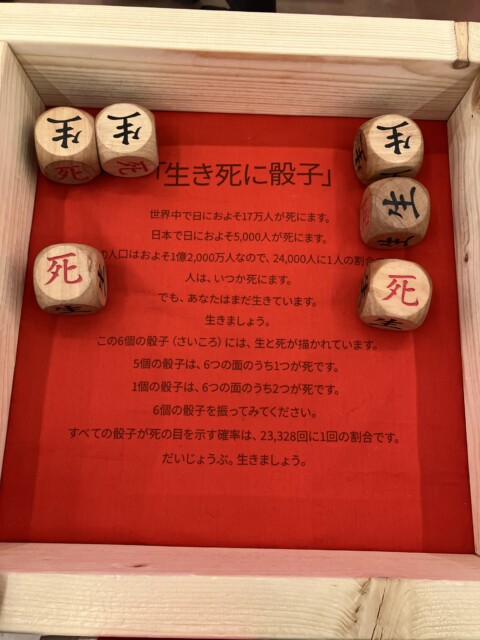 生 生 生
死 死
「生き死に骰子」
生
世界中で日におよそ17万人が死にます。
日本で日におよそ5,000人が死にます。
人口はおよそ1億2,000万人なので、24,000人に1人の割合
生
人は、いつか死にます。
死 死
でも、あなたはまだ生きています。
生きましょう。
この6個の骰子（さいころ）には、生と死が描かれています。
5個の骰子は、6つの面のうち1つが死です。
1個の骰子は、6つの面のうち2つが死です。
6個の骰子を振ってみてください。
すべての骰子が死の目を示す確率は、23,328回に1回の割合です。
だいじょうぶ。生きましょう。